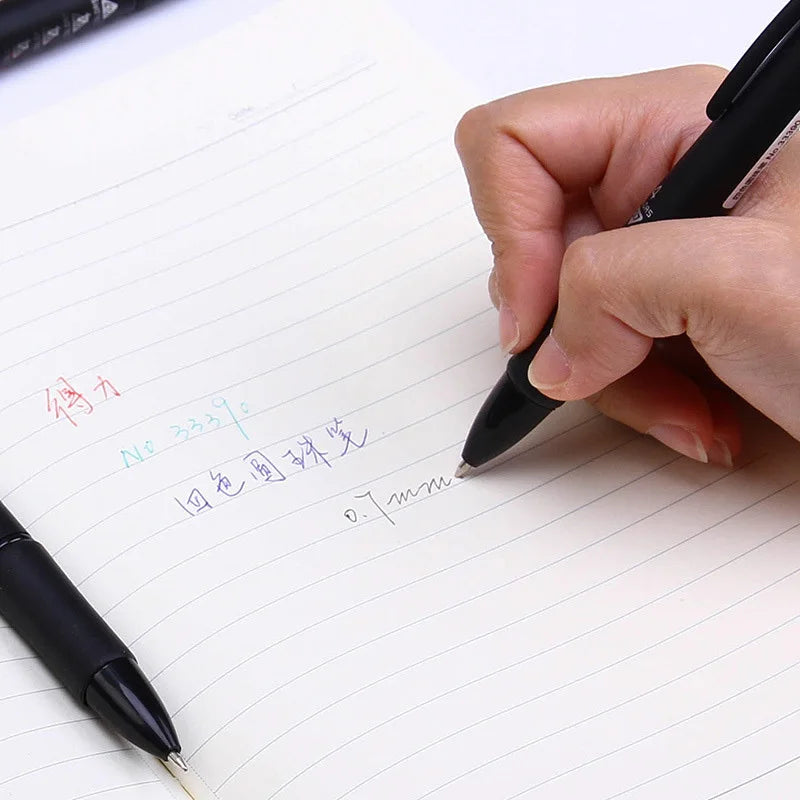 得力
No 33390
四色圆珠笔
0.7mm